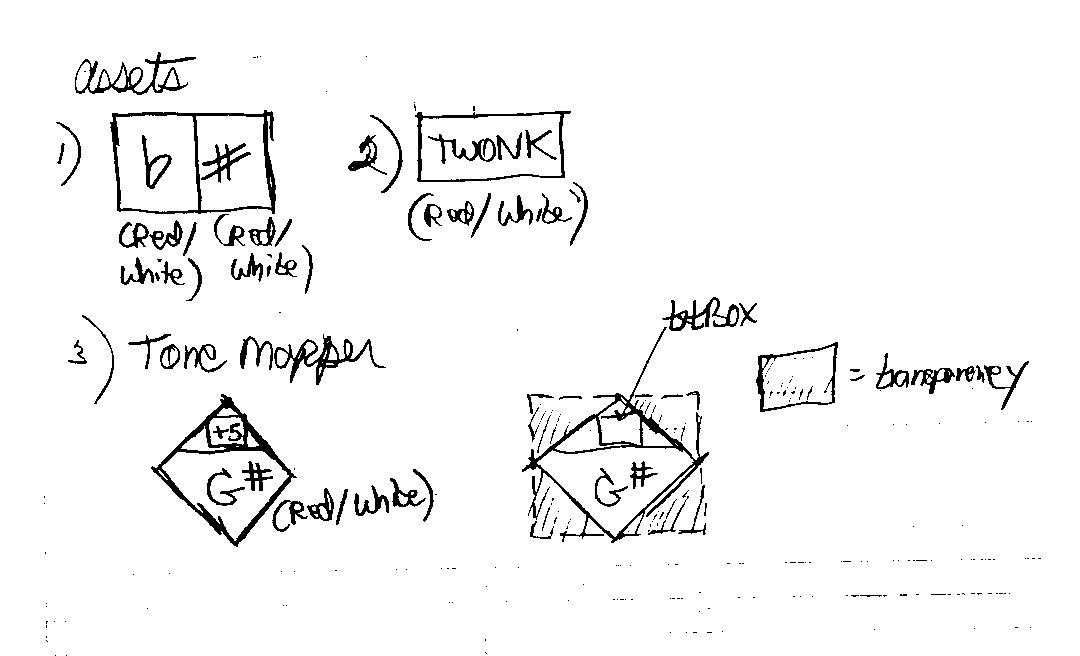 assets
1) b # 2) TWONK
(Red/ (Red/ (Red/White)
White) White)
3) Tone Mapper
txtBox
= transparency
+5
G# G#
(Red/White)